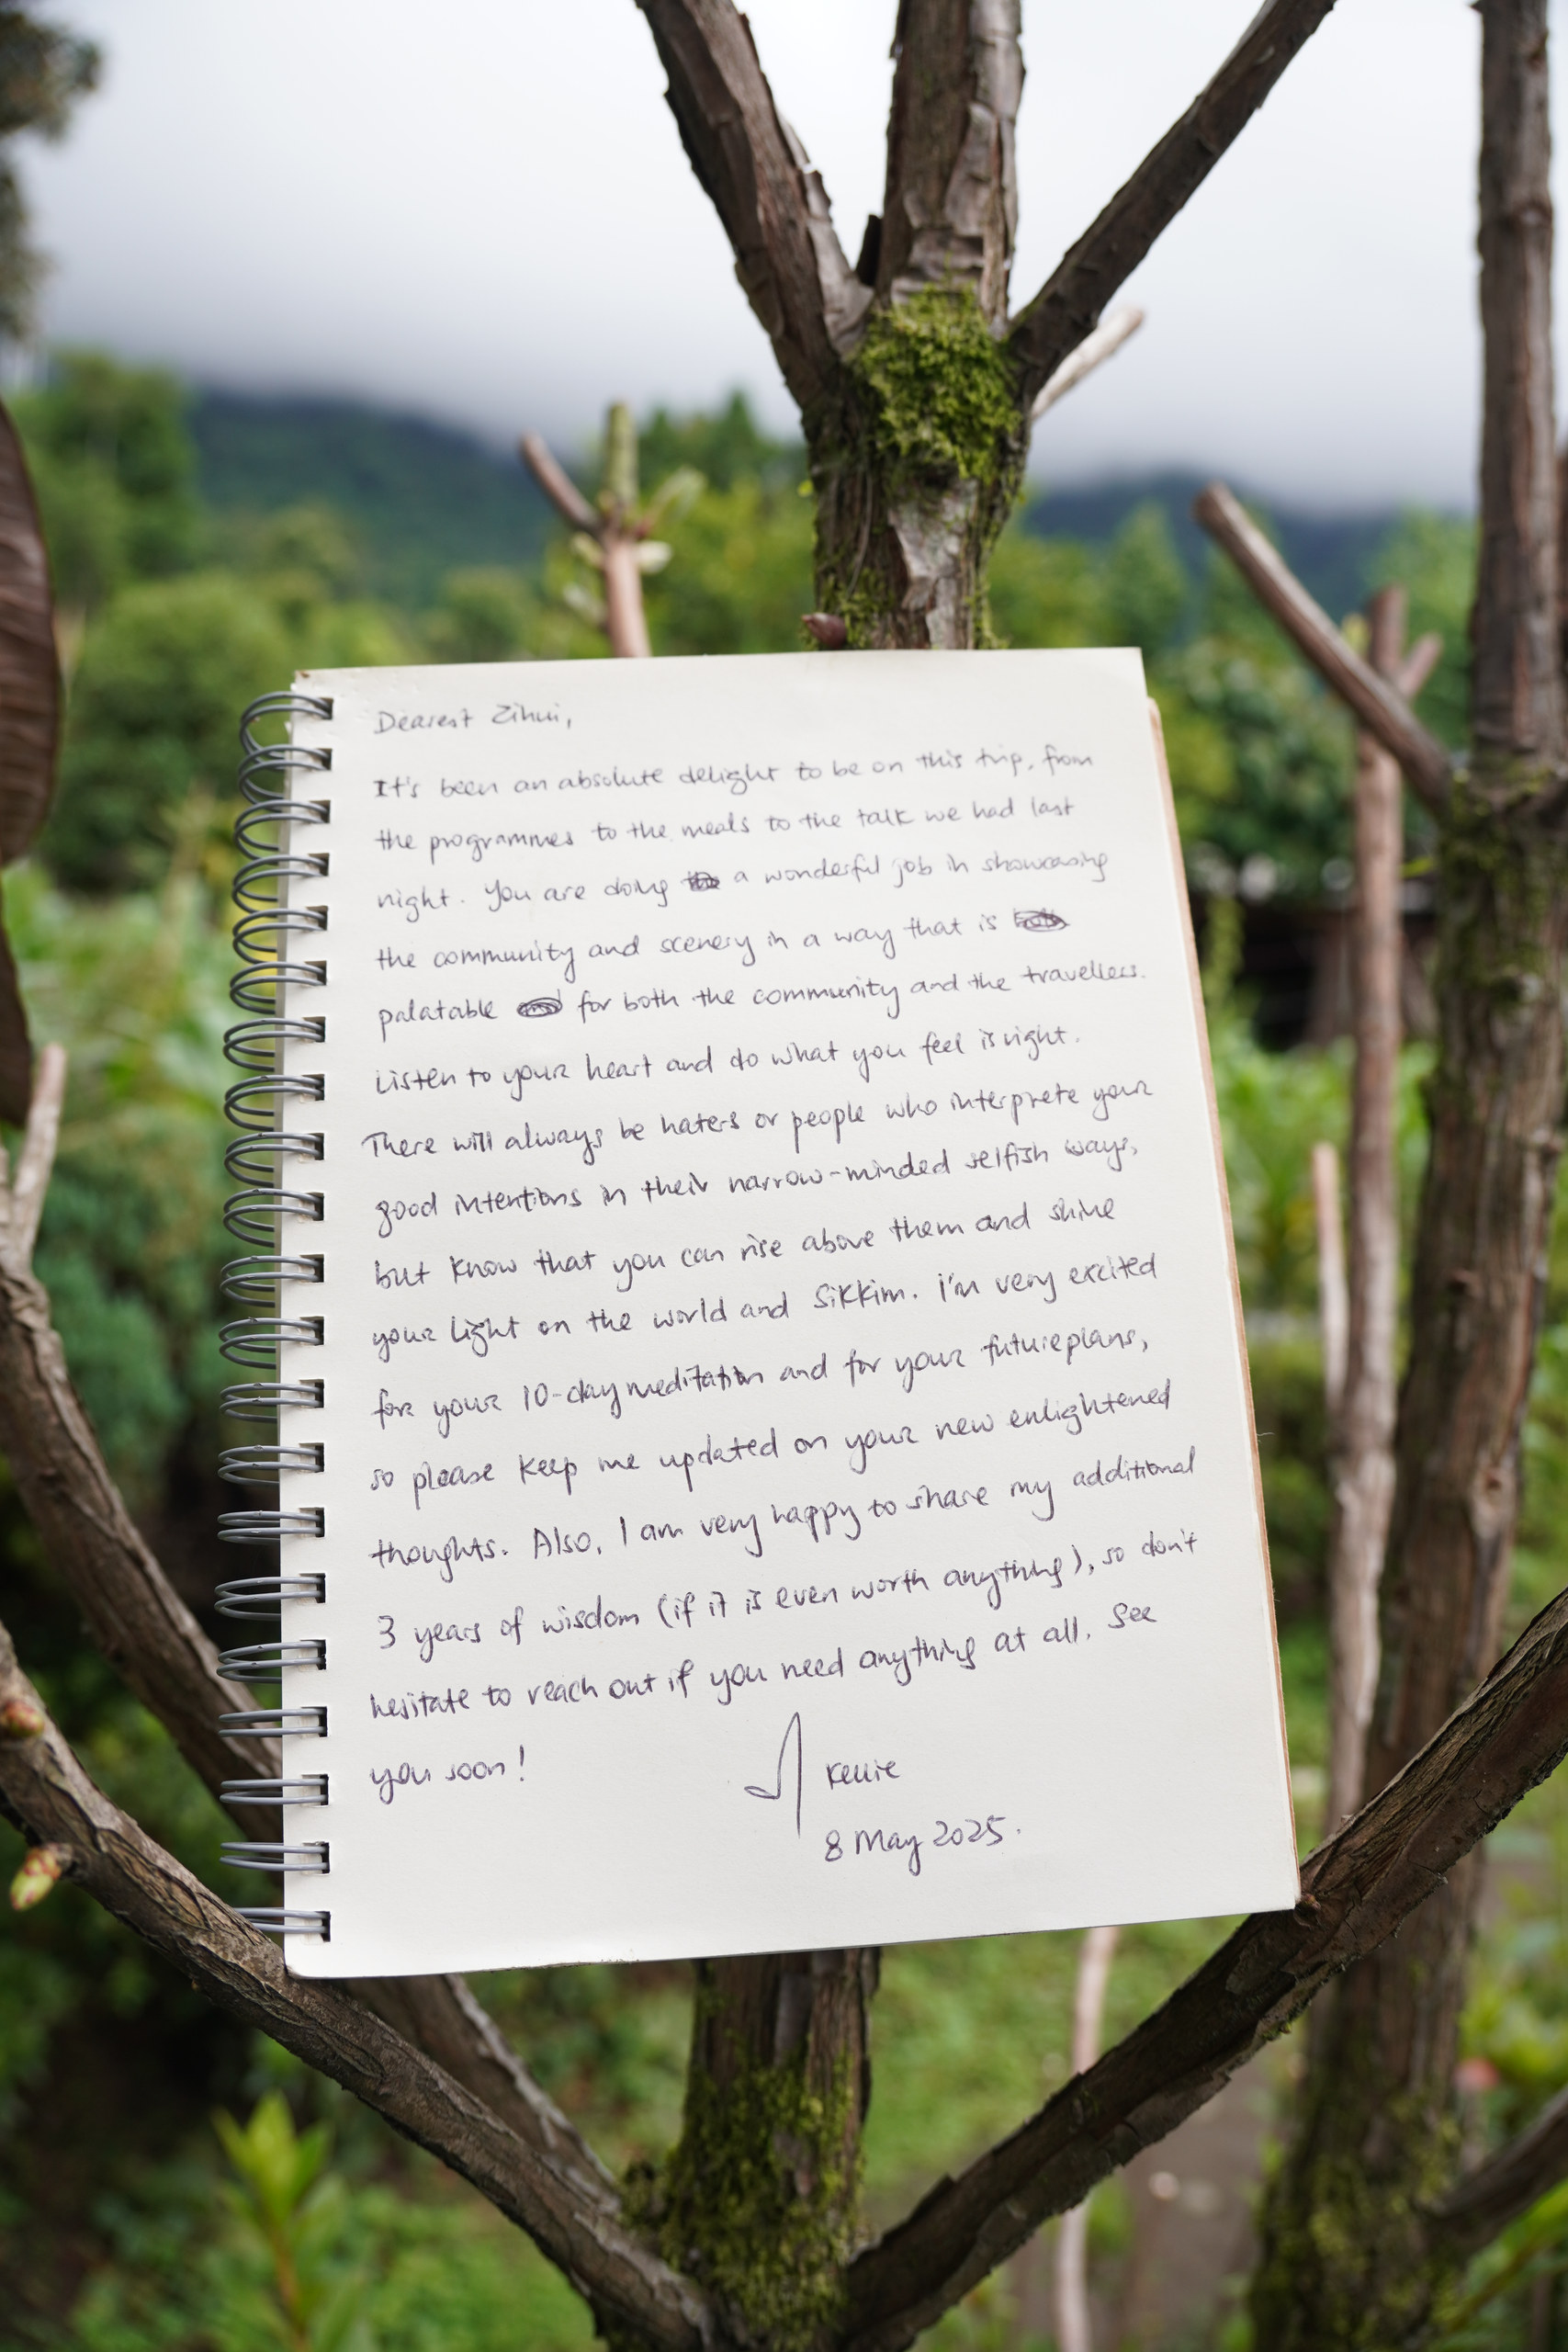 Dearest Zihui,
It's been an absolute delight to be on this trip, from
the programmes to the meals to the talk we had last
night. You are doing a wonderful job in showcasing
the community and scenery in a way that is
palatable for both the community and the travellers.
Listen to your heart and do what you feel is right.
There will always be haters or people who interprete your
good intentions in their narrow-minded selfish ways,
but know that you can rise above them and shine
your light on the world and Sikkim. I'm very excited
for your 10-day meditation and for your future plans,
so please keep me updated on your new enlightened
thoughts. Also, I am very happy to share my additional
3 years of wisdom (if it is even worth anything), so don't
hesitate to reach out if you need anything at all. See
you soon!
Kellie
8 May 2025.